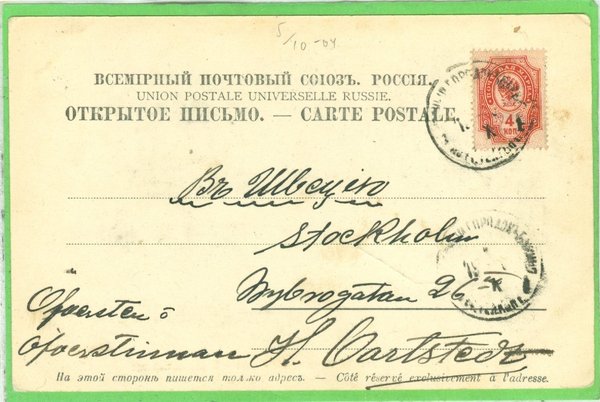 5/10-04
ВСЕМІРНЫЙ ПОЧТОВЫЙ СОЮЗЪ. РОССІЯ.
UNION POSTALE UNIVERSELLE RUSSIE.
ОТКРЫТОЕ ПИСЬМО. — CARTE POSTALE.
4
КОП
Въ Швецію
Stockholm
Nybrogatan 26
Öfversten o
Öfverstinnan H.
На этой сторонѣ пишется только адресъ. — Côté réservé exclusivement à l'adresse.